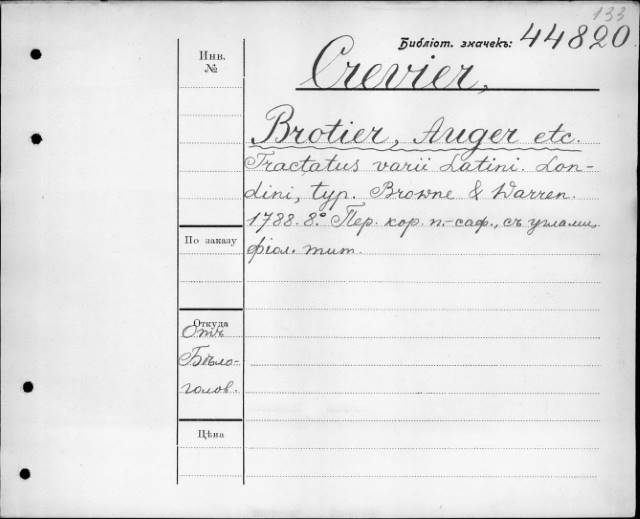 133
Библіот. значекъ: 44820.
Инв.
№
Crevier,
Brotier, Auger etc.
Tractatus varii Latini. Lon-
dini, typ. Browne & Warren.
1788. 8.° Пер. кор. п.-саф., съ углами,
фіол. тит.
По заказу
Откуда
Отъ
Бѣло-
голов.
Цѣна